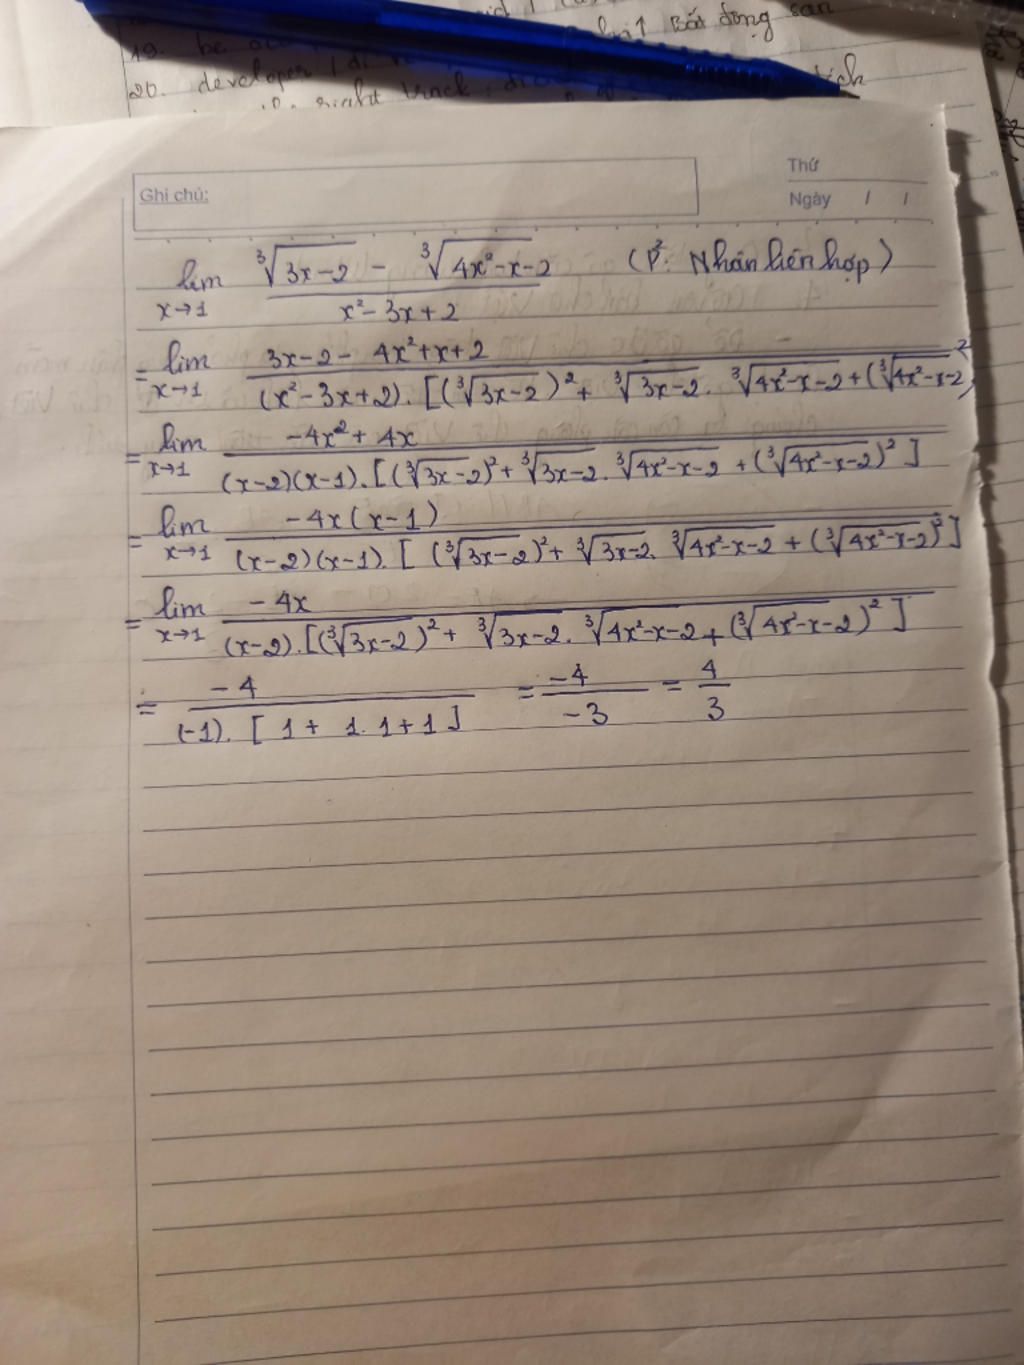 bất động sản
20. developer
right track
Ghi chú:
Thứ
Ngày / /
lim x→1 (∛(3x-2) - ∛(4x²-x-2)) / (x²-3x+2) (P²: Nhân liên hợp)
= lim x→1 (3x-2-4x²+x+2) / ((x²-3x+2).[(∛(3x-2))²+ ∛(3x-2). ∛(4x²-x-2)+(∛(4x²-x-2))²
= lim x→1 (-4x²+4x) / ((x-2)(x-1).[(∛(3x-2))²+∛(3x-2). ∛(4x²-x-2)+(∛(4x²-x-2))²])
= lim x→1 (-4x(x-1)) / ((x-2)(x-1).[(∛(3x-2))²+∛(3x-2). ∛(4x²-x-2)+(∛(4x²-x-2))²])
= lim x→1 (-4x) / ((x-2).[(∛(3x-2))²+ ∛(3x-2). ∛(4x²-x-2)+(∛(4x²-x-2))²])
= -4 / ((-1).[1+1.1+1]) = -4 / -3 = 4 / 3